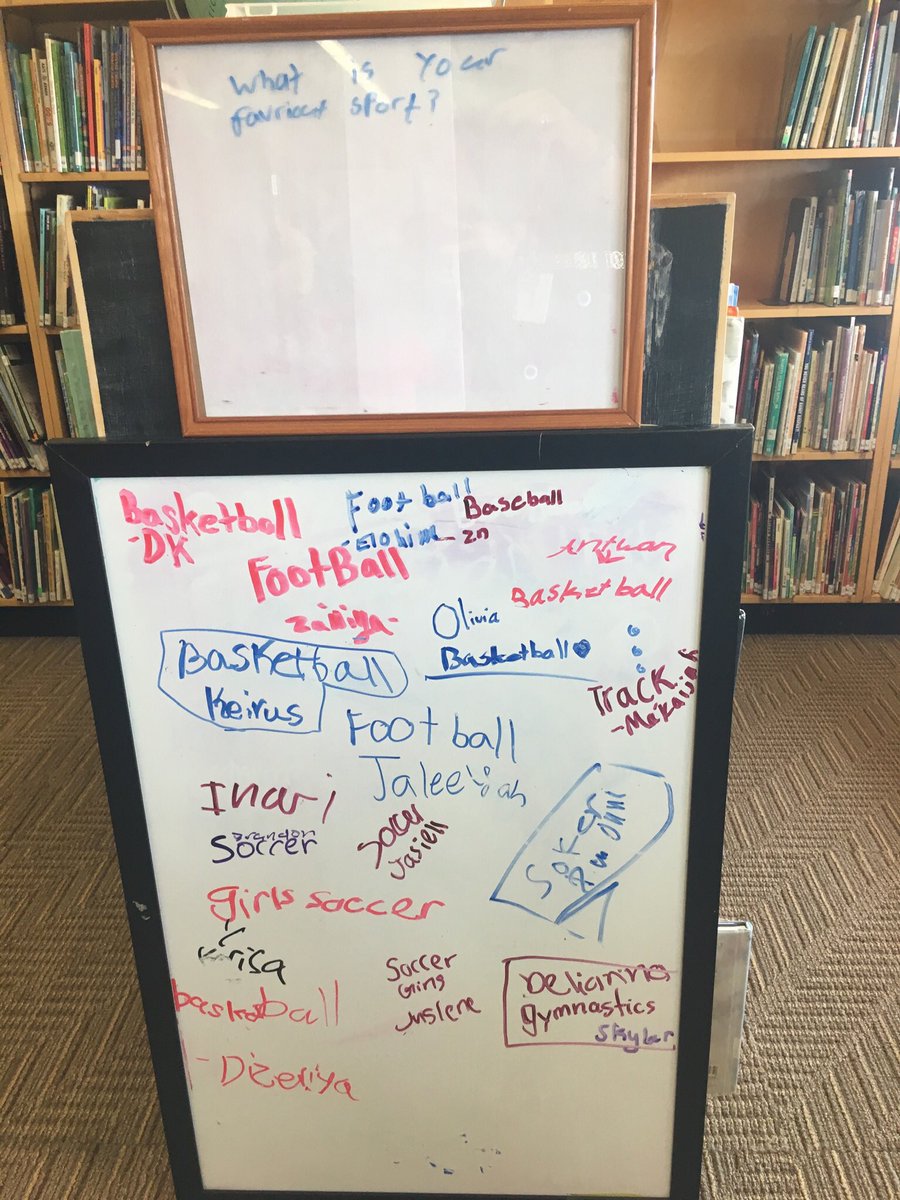 What is Your
favriout sport?
Basketball
-DK
Football
-Elohim
Baseball
- zn
FootBall
zaniya-
Antwan
Basketball
Olivia
Basketball
Basketball
Keirus
Track
-Mekaiyah
Football
Jaleeyah
Inari
Brandon
Soccer
Soccer
Jasiell
Soker
girls soccer
Krisa
basketball
- Dizeriya
Soccer
Girls
Juslene
Delianna
gymnastics
Skyler